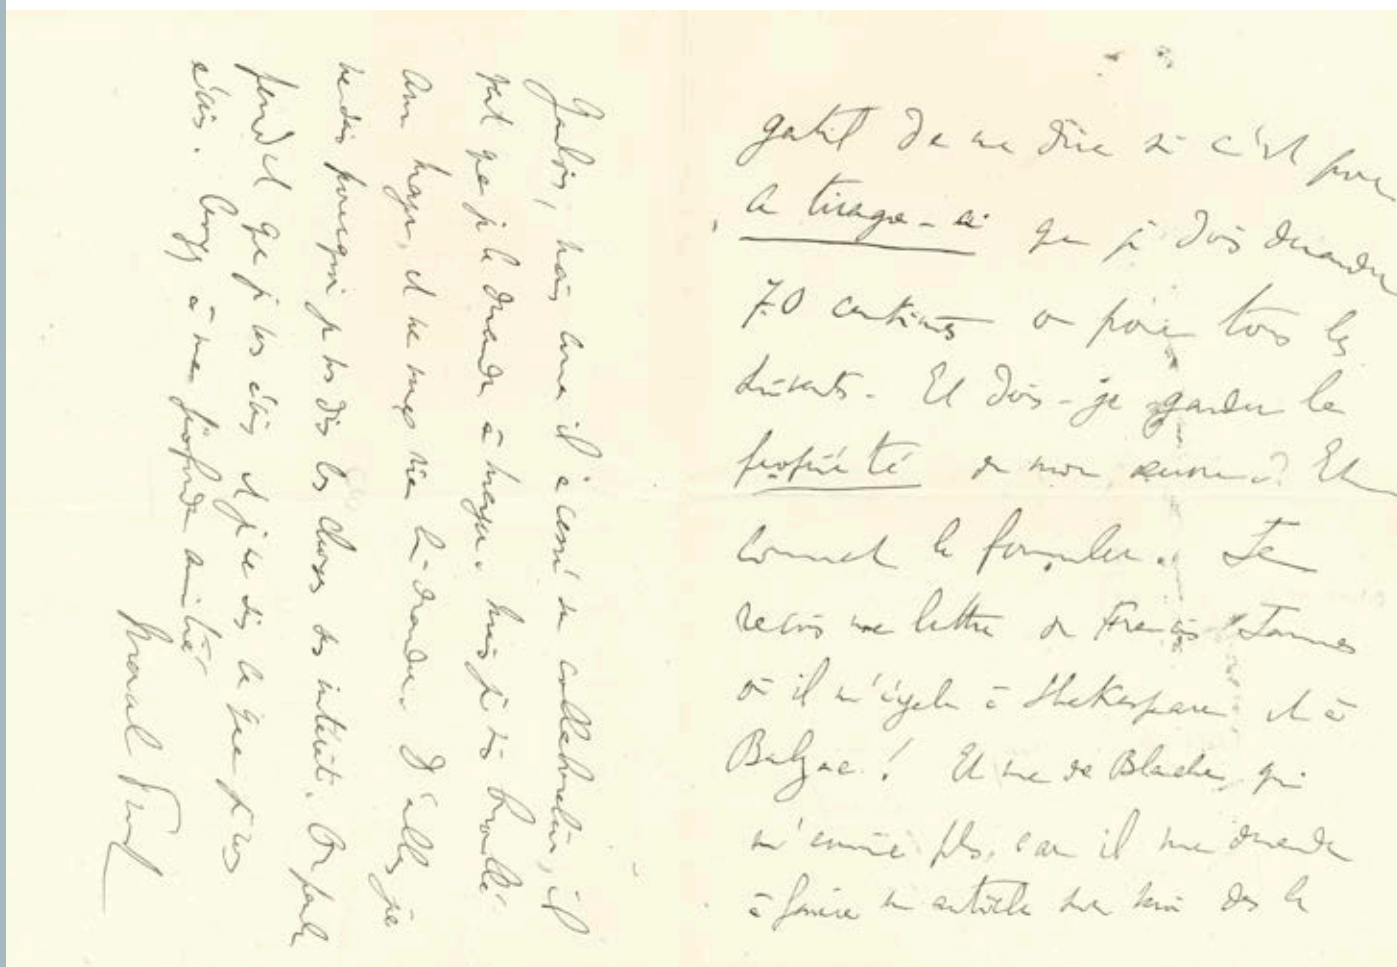 gentil de me dire si c'est pour
ce tirage-ci que je dois demander
70 centimes ou pour tous les
suivants. Et dois-je garder la
propriété de mon œuvre? Et
comment le formuler. Je
reçois une lettre de Francis Jammes
où il m'égale à Shakespeare et à
Balzac! Et une de Blanche qui
m'ennuie plus, car il me demande
à faire un article sur moi dans le
Gaulois, mais comme il a cessé sa collaboration, il
veut que je le demande à Meyer. Mais je suis brouillé
avec Meyer, et ne veux rien lui demander. D'ailleurs je
ne sais pourquoi je vous dis les choses sans intérêt. On parle
pendant que je vous écris et je ne sais ce que je vous
écris. Croyez à ma profonde amitié
Marcel Proust